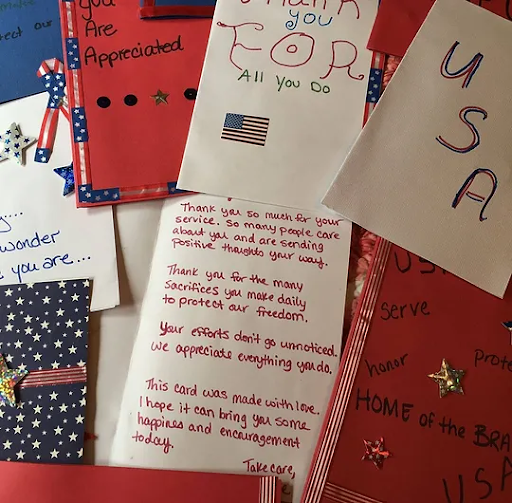 You
Are
Appreciated
Thank
you
FOR
All You Do
USA
Thank you so much for your
service. So many people care
about you and are sending
positive thoughts your way.
Thank you for the many
Sacrifices you make daily
to protect our freedom.
Your efforts don't go unnoticed.
We appreciate everything you do.
This card was made with love.
I hope it can bring you some
happines and encouragement
today.
Take care,
wonder
you are...
serve
honor
HOME of the BRA
USA